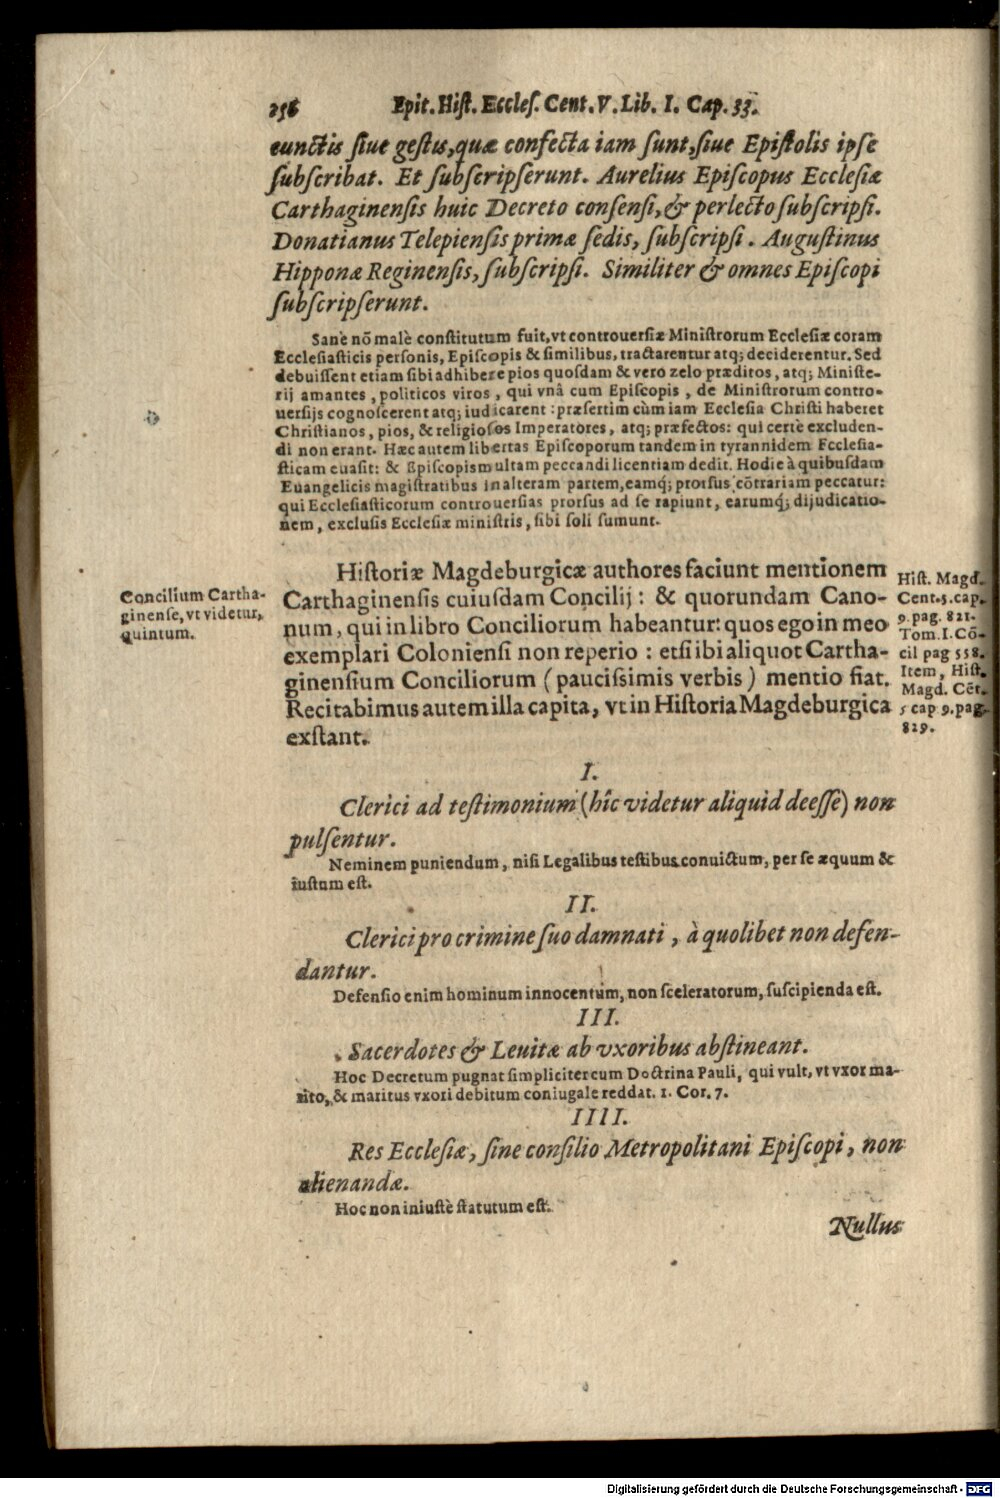 256 Epit. Hist. Eccles. Cent. V. Lib. I. Cap. 33.
cunctis siue gestis, quæ confecta iam sunt, siue Epistolis ipse
subscribat. Et subscripserunt. Aurelius Episcopus Ecclesiæ
Carthaginensis huic Decreto consensi, & perlecto subscripsi.
Donatianus Telepiensis primæ sedis, subscripsi. Augustinus
Hipponæ Reginensis, subscripsi. Similiter & omnes Episcopi
subscripserunt.
Sanè nō malè constitutum fuit, vt controuersiæ Ministrorum Ecclesiæ coram
Ecclesiasticis personis, Episcopis & similibus, tractarentur atq; deciderentur. Sed
debuissent etiam sibi adhibere pios quosdam & vero zelo præditos, atq; Ministe-
rij amantes, politicos viros, qui vnâ cum Episcopis, de Ministrorum contro-
uersijs cognoscerent atq; iudicarent: præsertim cùm iam Ecclesia Christi haberet
Christianos, pios, & religiosos Imperatores, atq; præfectos: qui certè excluden-
di non erant. Hæc autem libertas Episcoporum tandem in tyrannidem Ecclesia-
sticam euasit: & Episcopis multam peccandi licentiam dedit. Hodie à quibusdam
Euangelicis magistratibus in alteram partem, eamq́; prorsus cōtrariam peccatur:
qui Ecclesiasticorum controuersias prorsus ad se rapiunt, earumq́; dijudicatio-
nem, exclusis Ecclesiæ ministris, sibi soli sumunt.
Concilium Cartha-
ginense, vt videtur,
quintum.
Historiæ Magdeburgicæ authores faciunt mentionem
Carthaginensis cuiusdam Concilij: & quorundam Cano-
num, qui in libro Conciliorum habeantur: quos ego in meo
exemplari Coloniensi non reperio: etsi ibi aliquot Cartha-
ginensium Conciliorum (paucissimis verbis) mentio fiat.
Recitabimus autem illa capita, vt in Historia Magdeburgica
exstant.
Hist. Magd.
Cent. 5. cap.
9. pag. 821.
Tom. I. Cō-
cil pag 558.
Item, Hist.
Magd. Cēt.
5 cap 9. pag.
829.
I.
Clerici ad testimonium (hîc videtur aliquid deesse) non
pulsentur.
Neminem puniendum, nisi Legalibus testibus conuictum, per se æquum &
iustum est.
II.
Clerici pro crimine suo damnati, à quolibet non defen-
dantur.
Defensio enim hominum innocentum, non sceleratorum, suscipienda est.
III.
Sacerdotes & Leuitæ ab vxoribus abstineant.
Hoc Decretum pugnat simpliciter cum Doctrina Pauli, qui vult, vt vxor ma-
rito, & maritus vxori debitum coniugale reddat. 1. Cor. 7.
IIII.
Res Ecclesiæ, sine consilio Metropolitani Episcopi, non
alienandæ.
Hoc non iniustè statutum est.
Nullus
Digitalisierung gefördert durch die Deutsche Forschungsgemeinschaft - DFG